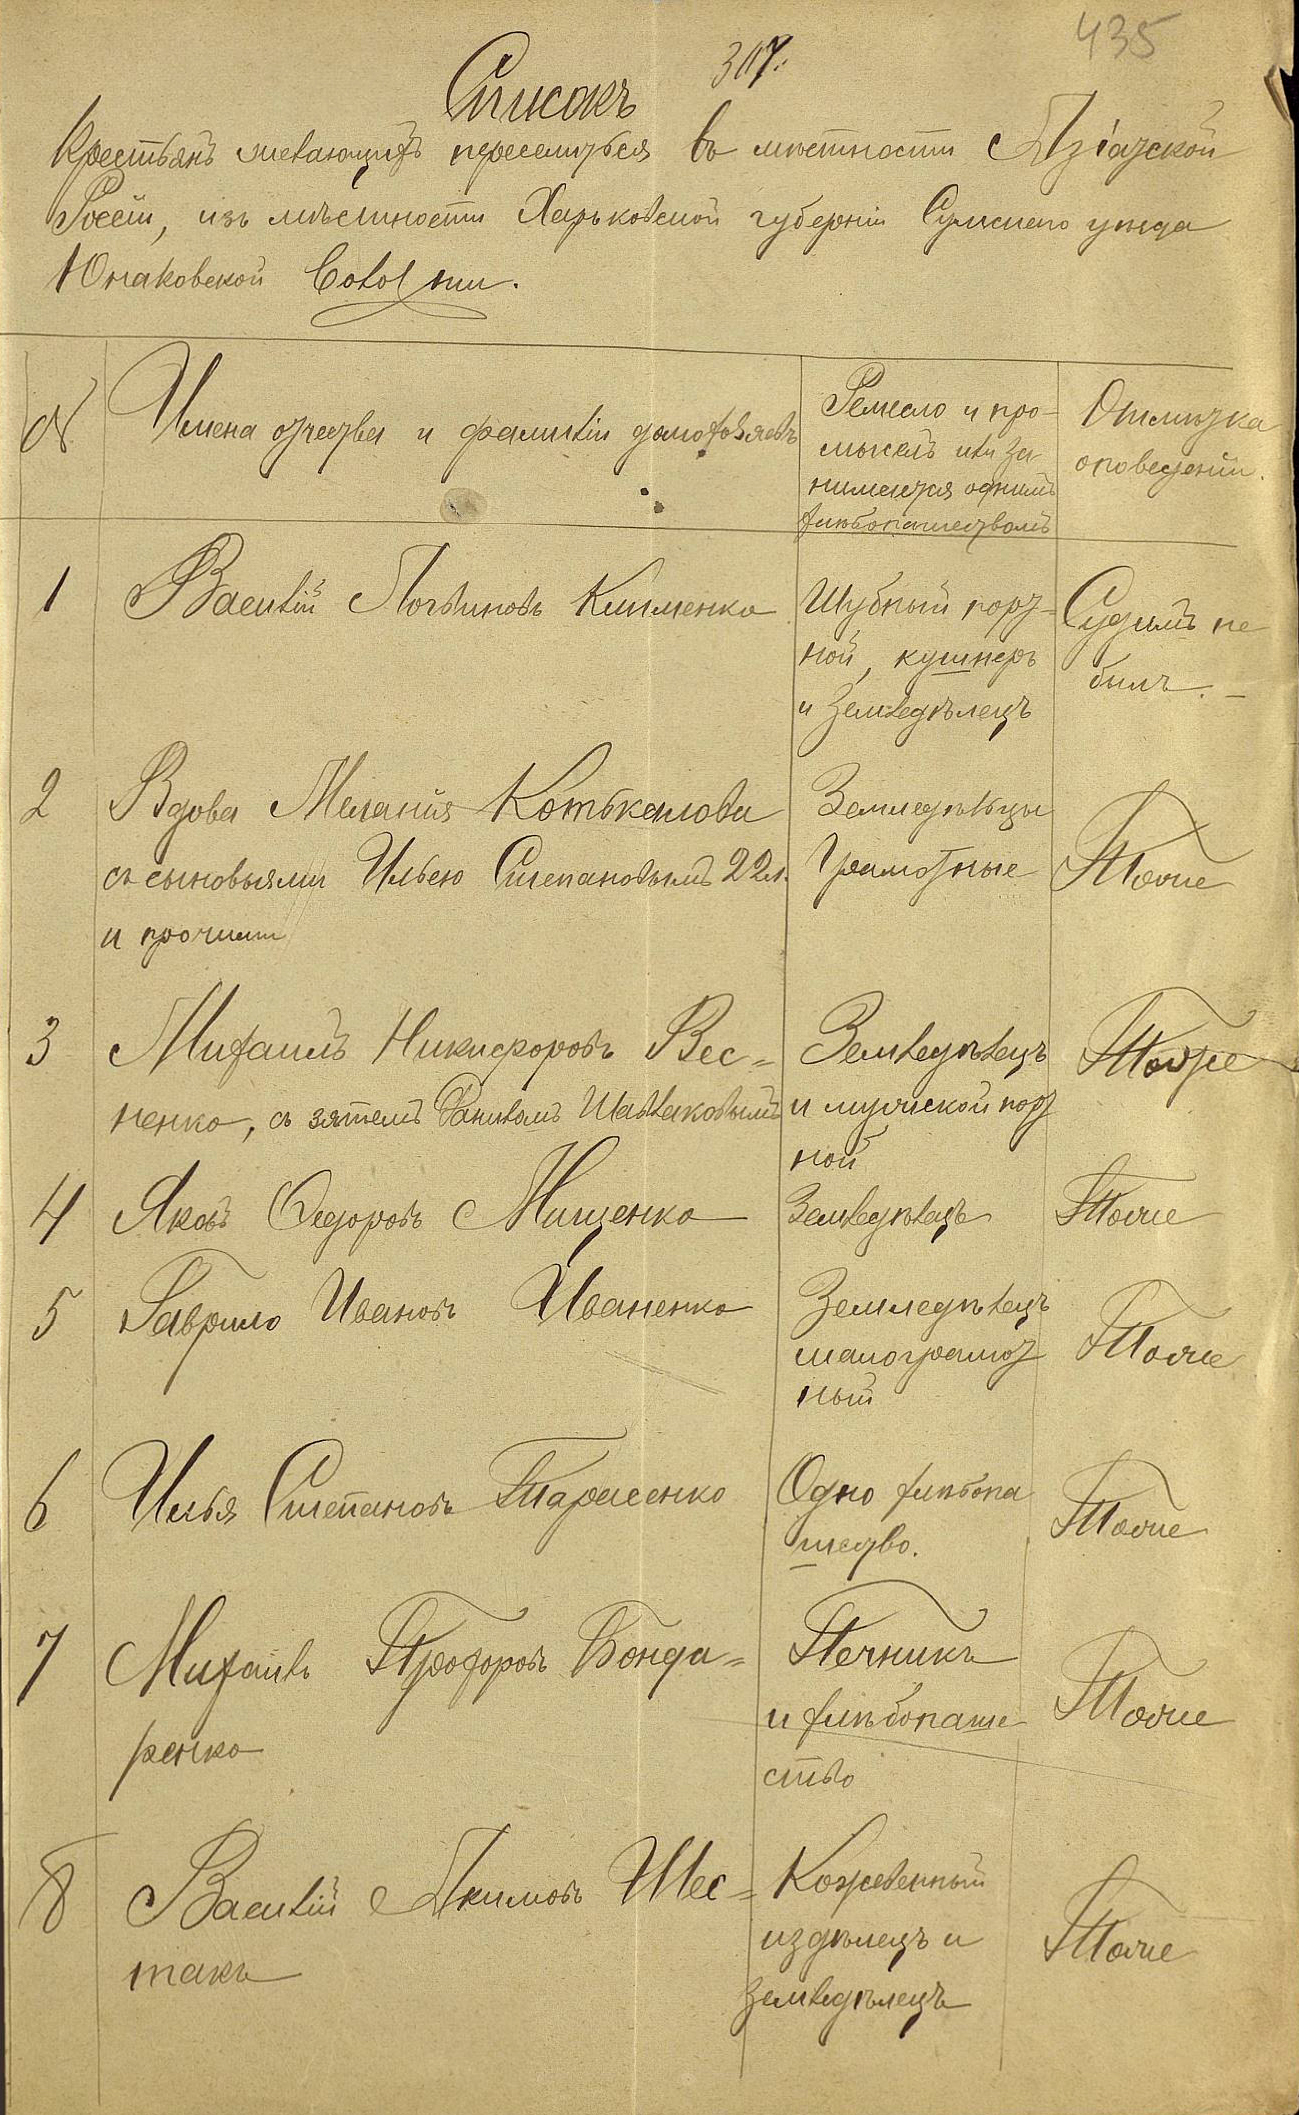 435
307.
Списокъ
Крестьянъ желающихъ переселиться въ местности Азіатской
Россіи, изъ мѣстности Харьковской губерніи Сумского уѣзда
Юнаковской Волости.
№ Имена отчества и фамиліи домохозяевъ
Ремесло и про-
мыселъ или за-
нимается однимъ
хлѣбопашествомъ
Отмѣтка
о поведеніи.
1 Василій Логвиновъ Клименко
Шубный порт-
ной, кушнеръ
и земледѣлецъ
Судимъ не
былъ.
2 Вдова Меланія
съ сыновьями Ильею Степановымъ 22 л.
и прочими
Земледѣльцы
Грамотные
Тоже
3 Михаилъ Никифоровъ Вес=
ненко, съ зятемъ Даниломъ
Земледѣлецъ
и мужской порт
ной
Тоже
4 Яковъ Федоровъ Мищенко
Земледѣлецъ
Тоже
5 Гаврило Ивановъ Иваненко
Земледѣлецъ
малограмот
ный
Тоже
6 Илья Степановъ Тарасенко
Одно хлѣбопа
шество.
Тоже
7 Михаилъ Прохоровъ Бонда=
ренко
Печникъ
и хлѣбопаше
ство
Тоже
8 Василій Акимовъ Шес=
такъ
Кожевенный
издѣлецъ и
земледѣлецъ
Тоже